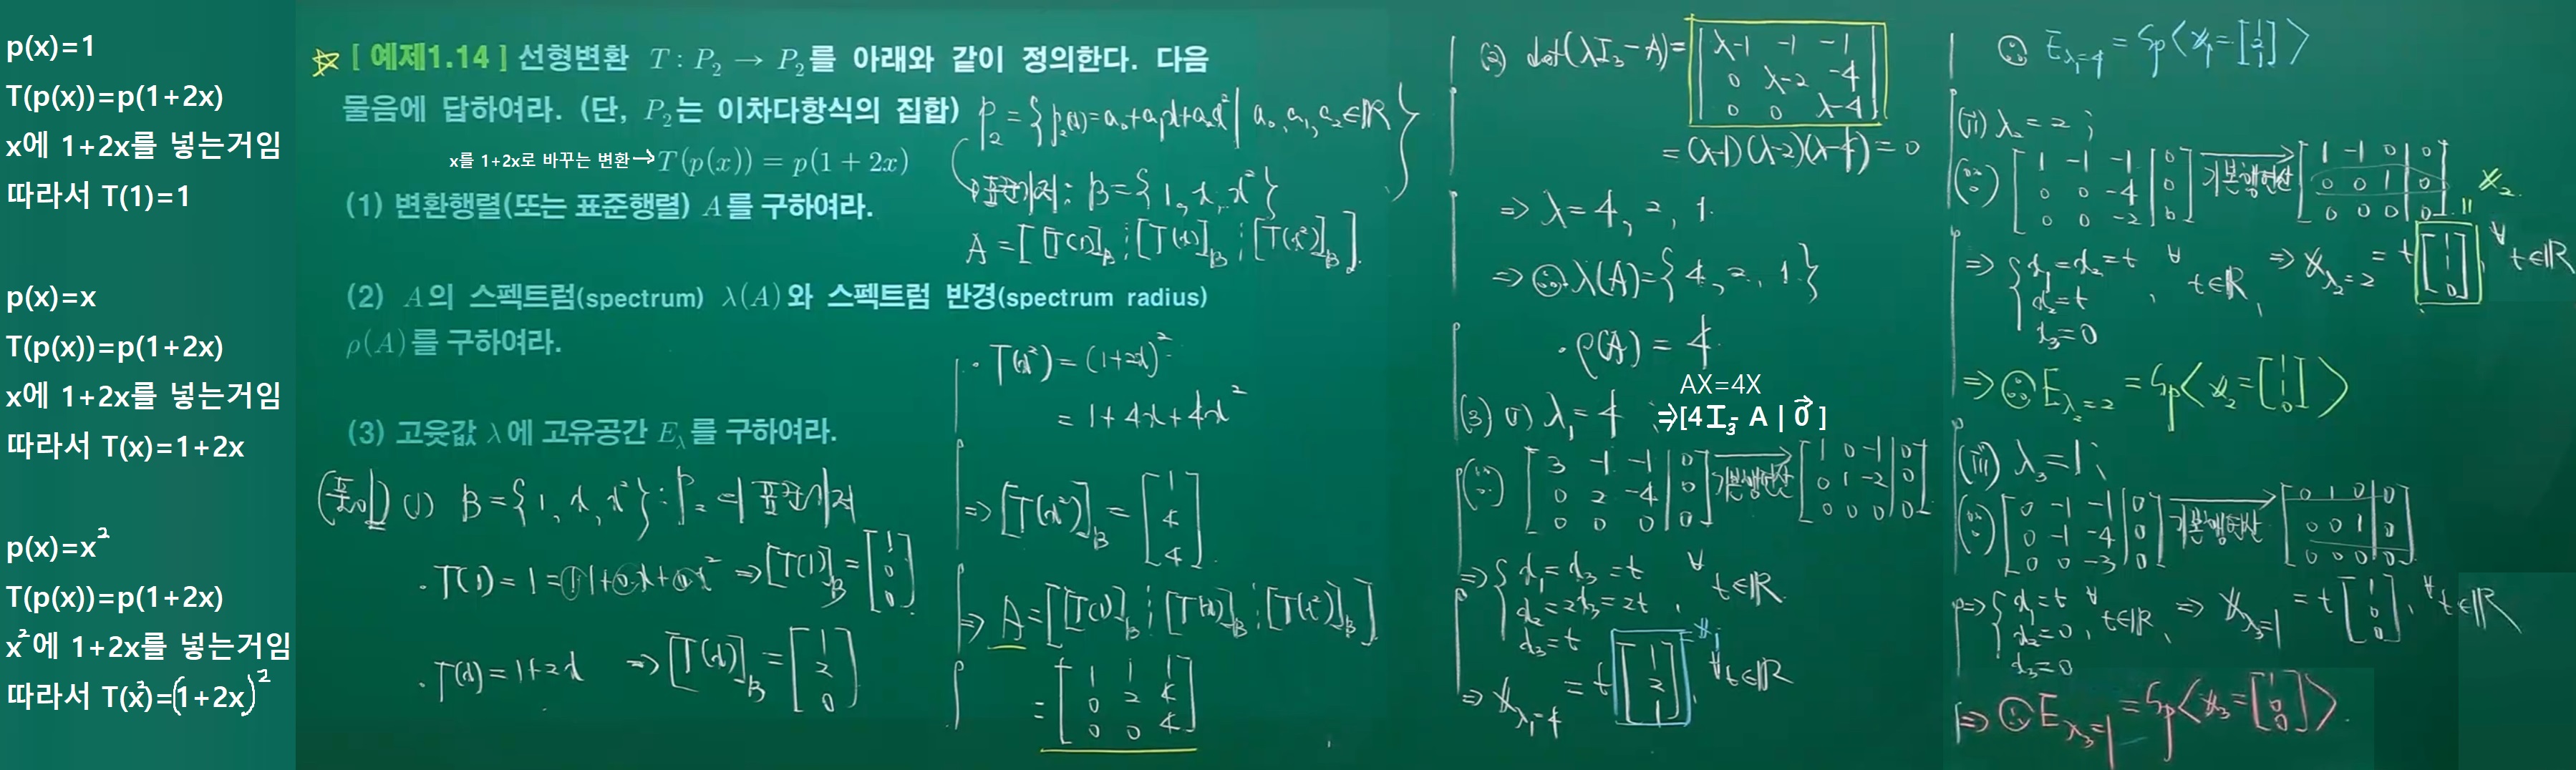 p(x)=1
T(p(x))=p(1+2x)
x에 1+2x를 넣는거임
따라서 T(1)=1
p(x)=x
T(p(x))=p(1+2x)
x에 1+2x를 넣는거임
따라서 T(x)=1+2x
p(x)=x²
T(p(x))=p(1+2x)
x²에 1+2x를 넣는거임
따라서 T(x²)=(1+2x)²
☆ [ 예제1.14 ] 선형변환 T : P₂ → P₂를 아래와 같이 정의한다. 다음
물음에 답하여라. (단, P₂는 이차다항식의 집합)
x를 1+2x로 바꾸는 변환→ T(p(x)) = p(1+2x)
(1) 변환행렬(또는 표준행렬) A를 구하여라.
(2) A의 스펙트럼(spectrum) λ(A)와 스펙트럼 반경(spectrum radius)
ρ(A)를 구하여라.
(3) 고윳값 λ에 고유공간 E_λ를 구하여라.
P₂ = {p₂(x)=a₀+a₁x+a₂x² | a₀, a₁, a₂∈ℝ}
표준기저: B={1, x, x²}
A = [[T(1)]_B ⋮ [T(x)]_B ⋮ [T(x²)]_B].
(풀이) (1) B={1, x, x²} : P₂의 표준기저
· T(1) = 1 = 1·1+0·x+0·x² ⇒ [T(1)]_B = [1 0 0]
· T(x) = 1+2x ⇒ [T(x)]_B = [1 2 0]
· T(x²) = (1+2x)²
= 1+4x+4x²
⇒ [T(x²)]_B = [1 4 4].
⇒ A = [[T(1)]_B ⋮ [T(x)]_B ⋮ [T(x²)]_B].
= [1 1 1
0 2 4
0 0 4]
(2) det(λI₃-A) = |λ-1 -1 -1
0 λ-2 -4
0 0 λ-4|
= (λ-1)(λ-2)(λ-4) = 0
⇒ λ = 4, 2, 1.
⇒ ∴ λ(A) = {4, 2, 1}
· ρ(A) = 4.
AX=4X
(3) (i) λ₁ = 4 ; ⇒[4I₃- A | 0⃗ ]
(∵) [3 -1 -1 | 0
0 2 -4 | 0
0 0 0 | 0] 기본행연산→ [1 0 -1 | 0
0 1 -2 | 0
0 0 0 | 0]
⇒ { x₁ = x₃ = t
x₂ = 2x₃ = 2t , ∀t∈ℝ
x₃ = t
⇒ x_λ₁=4 = t [1 2 1], ∀t∈ℝ
= x₁
∴ E_λ₁=4 = Sp< x₁ = [1 2 1] >
(ii) λ₂ = 2 ;
(∵) [1 -1 -1 | 0
0 0 -4 | 0
0 0 -2 | 0] 기본행연산→ [1 -1 0 | 0
0 0 1 | 0
0 0 0 | 0].
⇒ { x₁ = x₂ = t
x₂ = t , ∀t∈ℝ,
x₃ = 0
⇒ x_λ₂=2 = t [1 1 0], ∀t∈ℝ
= x₂.
⇒ ∴ E_λ₂=2 = Sp< x₂ = [1 1 0] >
(iii) λ₃ = 1 ;
(∵) [0 -1 -1 | 0
0 -1 -4 | 0
0 0 -3 | 0] 기본행연산→ [0 1 0 | 0
0 0 1 | 0
0 0 0 | 0].
⇒ { x₁ = t
x₂ = 0 , ∀t∈ℝ,
x₃ = 0
⇒ x_λ₃=1 = t [1 0 0], ∀t∈ℝ
⇒ ∴ E_λ₃=1 = Sp< x₃ = [1 0 0] >.